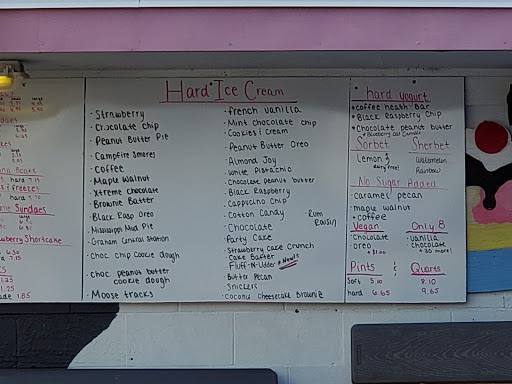 Hard Ice Cream
· Strawberry
· Chocolate Chip
· Peanut Butter Pie
· Campfire Smores
· Coffee
· Maple Walnut
· Xtreme Chocolate
· Brownie Batter
· Black Rasp Oreo
· Mississippi Mud Pie
· Graham Central Station
· Choc Chip Cookie Dough
· Choc peanut butter
cookie dough
· Moose tracks
· french vanilla
· Mint chocolate chip
· Cookies & Cream
· Peanut Butter Oreo
· Almond Joy
· White Pistachio
· Chocolate peanut butter
· Black Raspberry
· Cappucino Chip
· Cotton Candy
· Rum
Raisin
· Chocolate
· Party Cake
· Strawberry Cake Crunch
· Cake Batter
· Fluff-N-Udder
· Butter Pecan
· Snickers
· Coconut Cheesecake Brownie
hard yogurt
* Coffee heath Bar
* Black Raspberry Chip
* Chocolate peanut butter
Sorbet
Lemon
dairy free!
Sherbet
Watermelon
Rainbow
No Sugar Added
· Caramel pecan
· maple walnut
· Coffee
Vegan
chocolate
oreo
+ $1.00
Only 8
· vanilla
· chocolate
+ 30 more!
Pints & Quarts
Soft 5.10 8.10
hard 6.65 9.65
Sundaes
Strawberry Shortcake
& freezes
hard 7.15
1.25
1.25
1.85